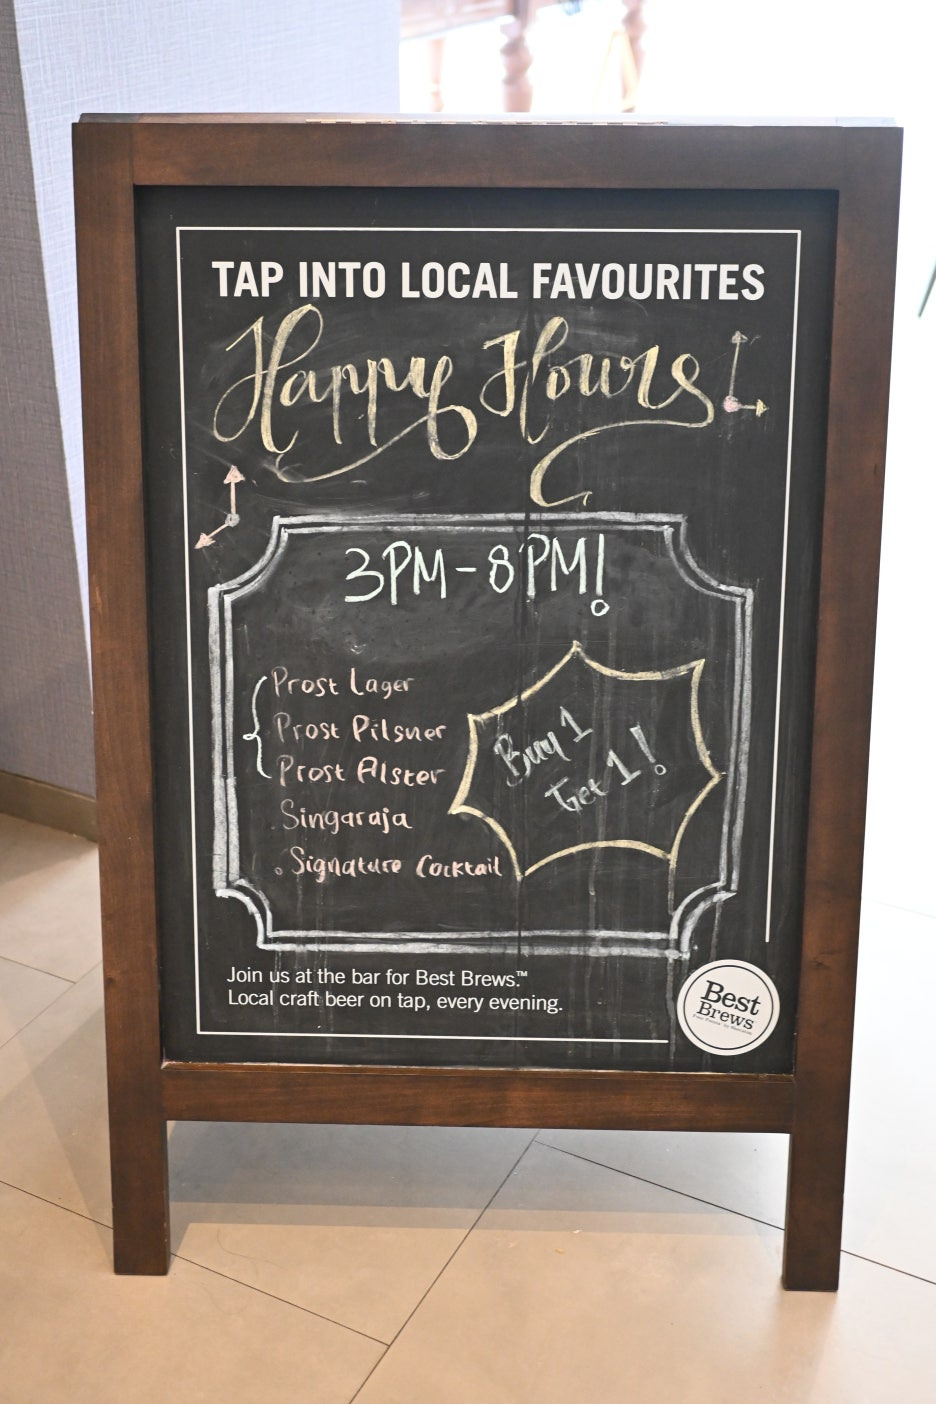 TAP INTO LOCAL FAVOURITES
Happy Hours
3PM - 8PM!
Prost Lager
Prost Pilsner
Prost Alster
Singaraja
Signature Cocktail
Buy 1
Get 1!
Join us at the bar for Best Brews.™
Local craft beer on tap, every evening.
Best
Brews
Four Points by Sheraton